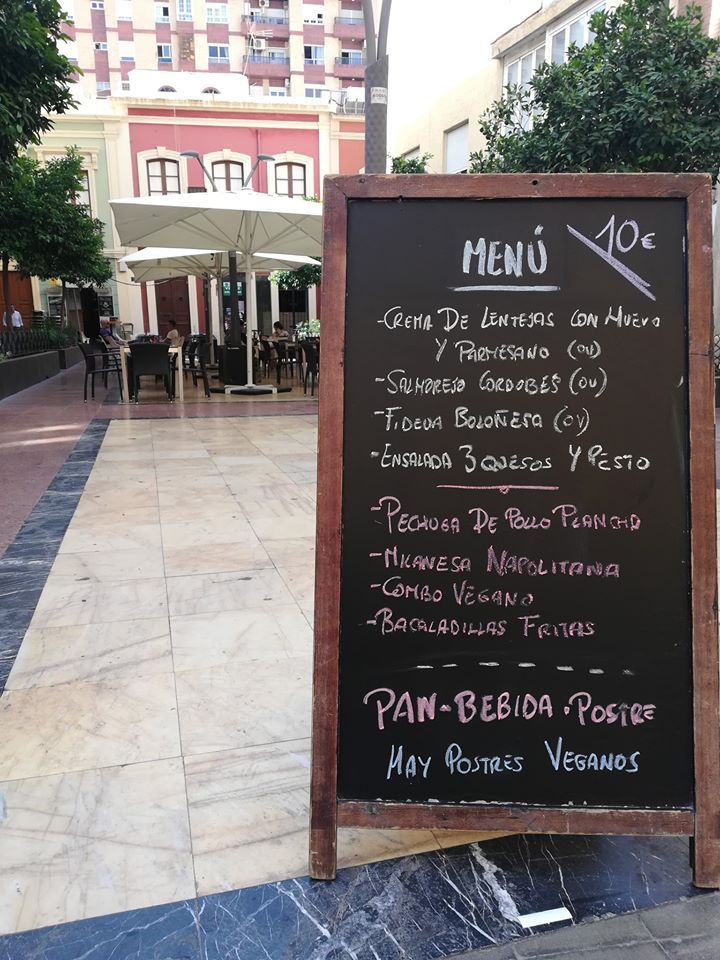 MENÚ 10€
-CREMA DE LENTEJAS CON HUEVO
Y PARMESANO (OV)
-SALMOREJO CORDOBES (OV)
-FIDEUA BOLOÑESA (OV)
-ENSALADA 3 QUESOS Y PESTO
-PECHUGA DE POLLO PLANCHA
-MILANESA NAPOLITANA
-COMBO VEGANO
-BACALADILLAS FRITAS
PAN-BEBIDA.POSTRE
HAY POSTRES VEGANOS